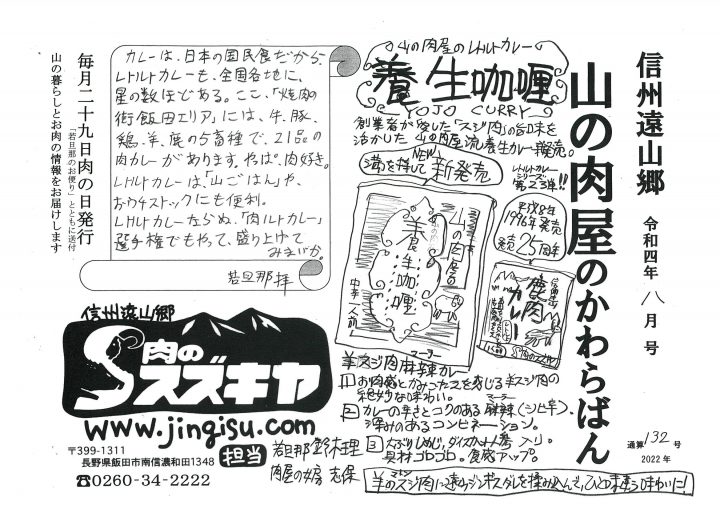 信州遠山郷
令和四年 八月号
山の肉屋のかわらばん
通算132号
2022年
山の肉屋のレトルトカレー
養生咖喱
YOJO CURRY
創業者が愛した「スジ肉」の旨味を
活かした山の肉屋流養生カレー新発売。
NEW
満を持して新発売
レトルトカレー
シリーズ
第23弾!!
平成8年
1996年発売
発売25周年
山の肉屋の
養生咖喱
中辛 一人前
鹿肉
カレー
羊スジ肉麻辣カレー
マーラー
1 お肉感とかみごたえを感じる羊スジ肉の
絶妙な味わい。
2 カレーの辛さとコクのある麻辣(シビ辛)、
マーラー
深みのあるコンビネーション。
3 大ぶりしめじ、ダイスカット人参入り。
具材ゴロゴロ。食感アップ。
羊のスジ肉に遠山ジンギスダレを揉み込んで、ひと味違う味わいに!
カレーは、日本の国民食だから、
レトルトカレーも、全国各地に、
星の数ほどある。ここ、「焼肉の
街飯田エリア」には、牛、豚、
鶏、羊、鹿の5畜種で、21品の
肉カレーがあります。やっぱ、肉好き。
レトルトカレーは、「山ごはん」や、
おウチストックにも便利。
レトルトカレーならぬ、「肉ルトカレー」
選手権でもやって、盛り上げて
みまいか。
若旦那 拝
毎月二十九日肉の日発行
「若旦那のお便り」とともに送付
山の暮らしとお肉の情報をお届けします
信州遠山郷
肉の
スズキヤ
www.jingisu.com
〒399-1311
長野県飯田市南信濃和田1348
☎0260-34-2222
担当
若旦那 鈴木理
肉屋の女房 志保